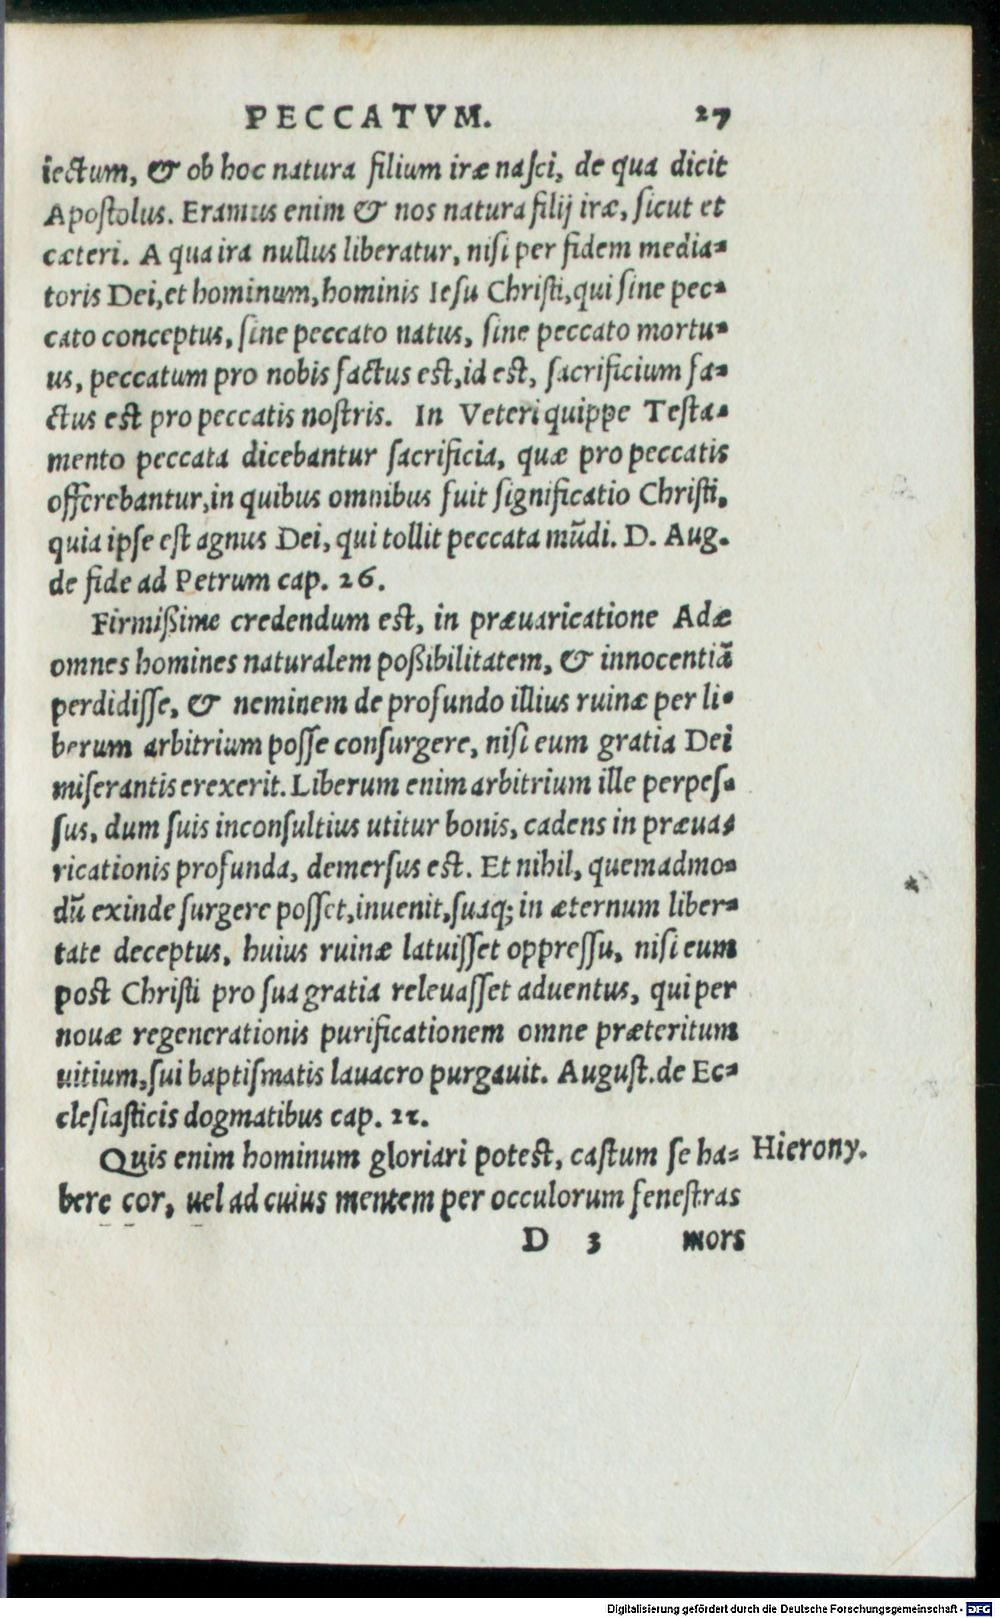 PECCATVM. 27
iectum, & ob hoc natura filium iræ nasci, de qua dicit
Apostolus. Eramus enim & nos natura filij iræ, sicut et
cæteri. A qua ira nullus liberatur, nisi per fidem media-
toris Dei, et hominum, hominis Iesu Christi, qui sine pec-
cato conceptus, sine peccato natus, sine peccato mortu-
us, peccatum pro nobis factus est, id est, sacrificium fa-
ctus est pro peccatis nostris. In Veteri quippe Testa-
mento peccata dicebantur sacrificia, quæ pro peccatis
offerebantur, in quibus omnibus fuit significatio Christi,
quia ipse est agnus Dei, qui tollit peccata mũdi. D. Aug.
de fide ad Petrum cap. 26.
Firmißime credendum est, in præuaricatione Adæ
omnes homines naturalem poßibilitatem, & innocentiã
perdidisse, & neminem de profundo illius ruinæ per li-
berum arbitrium posse consurgere, nisi eum gratia Dei
miserantis erexerit. Liberum enim arbitrium ille perpes-
sus, dum suis inconsultius utitur bonis, cadens in præua-
ricationis profunda, demersus est. Et nihil, quemadmo-
dũ exinde surgere posset, inuenit, suaq; in æternum liber-
tate deceptus, huius ruinæ latuisset oppressu, nisi eum
post Christi pro sua gratia releuasset aduentus, qui per
nouæ regenerationis purificationem omne præteritum
uitium, sui baptismatis lauacro purgauit. August. de Ec-
clesiasticis dogmatibus cap. 21.
Quis enim hominum gloriari potest, castum se ha- Hierony.
bere cor, uel ad cuius mentem per occulorum fenestras
D 3 mors
Digitalisierung gefördert durch die Deutsche Forschungsgemeinschaft - DFG